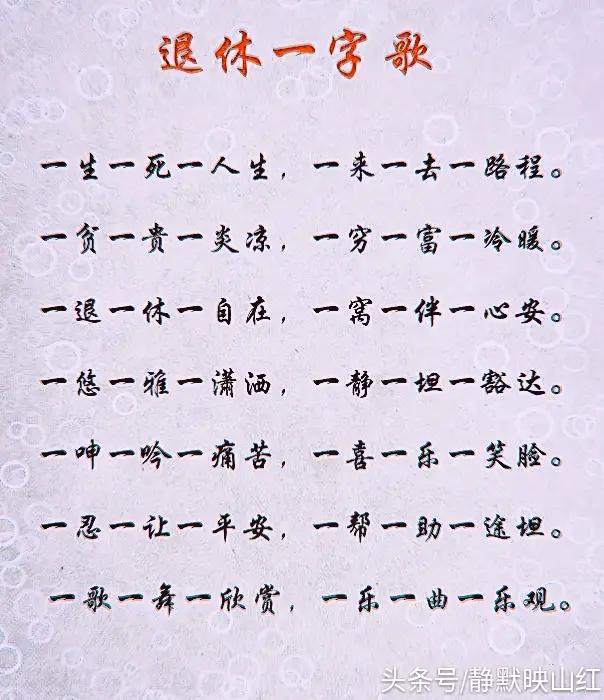 退休一字歌
一生一死一人生，一来一去一路程。
一贫一贵一炎凉，一穷一富一冷暖。
一退一休一自在，一窝一伴一心安。
一悠一雅一潇洒，一静一坦一豁达。
一呻一吟一痛苦，一喜一乐一笑脸。
一忍一让一平安，一帮一助一途坦。
一歌一舞一欣赏，一乐一曲一乐观。
头条号/静默映山红